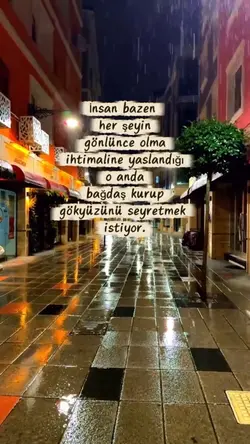 insan bazen
her şeyin
gönlünce olma
ihtimaline yaslandığı
o anda
bağdaş kurup
gökyüzünü seyretmek
istiyor.